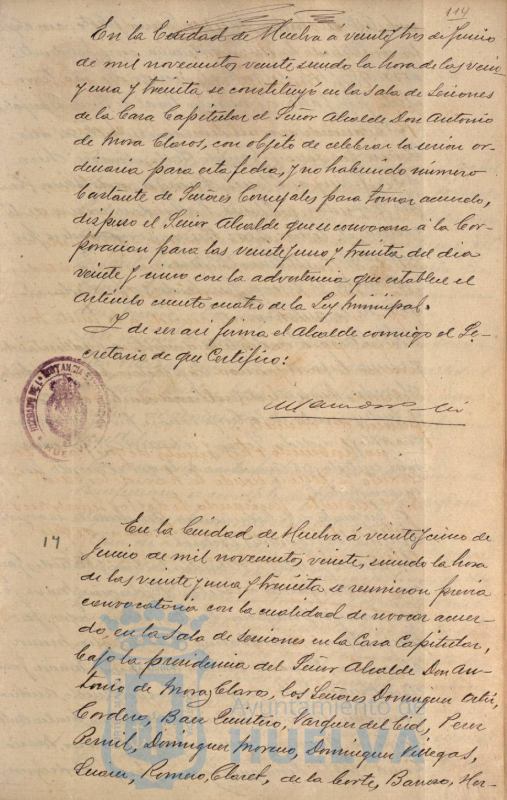 114
En la Ciudad de Huelva á veinte y tres de Junio
de mil novecientos veinte siendo la hora de las vein
te y una y treinta se constituyó en la Sala de Sesiones
de la Casa Capitular el Señor Alcalde Don Antonio
de Mora Claros, con objeto de celebrar la sesion or
dinaria para esta fecha, y no habiendo número
bastante de Señores Concejales para tomar acuerdo,
dispuso el Señor Alcalde que se convocara á la Cor
poracion para las veinte y una y treinta del dia
veinte y cinco con la advertencia que establece el
Articulo ciento cuatro de la Ley Municipal.
Y de ser asi firma el Alcalde conmigo el Se-
cretario de que Certifico:
HUELVA
17
En la Ciudad de Huelva á veinte y cinco de
Junio de mil novecientos veinte, siendo la hora
de las veinte y una y treinta se reunieron previa
convocatoria con la cualidad de
do, en la Sala de Sesiones en la Casa Capitular,
bajo la presidencia del Señor Alcalde Don An-
tonio de Mora y Claro, los Señores Dominguez
Cordero, Baez Quintero, Vazquez del Cid, Perez
Dominguez Moreno, Dominguez Villegas,
Suarez, Romero, Claret, de la Corte, Barroso, Her-
Ayuntamiento de
HUELVA